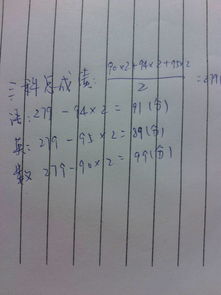 三科总成绩: (90×2+94×2+95×2)/2 =279
语: 279-94×2=91(分)
英: 279-95×2=89(分)
数 279-90×2=99(分)